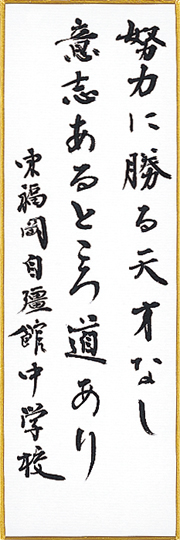 努力に勝る天才なし
意志あるところ道あり
東福岡自彊館中学校